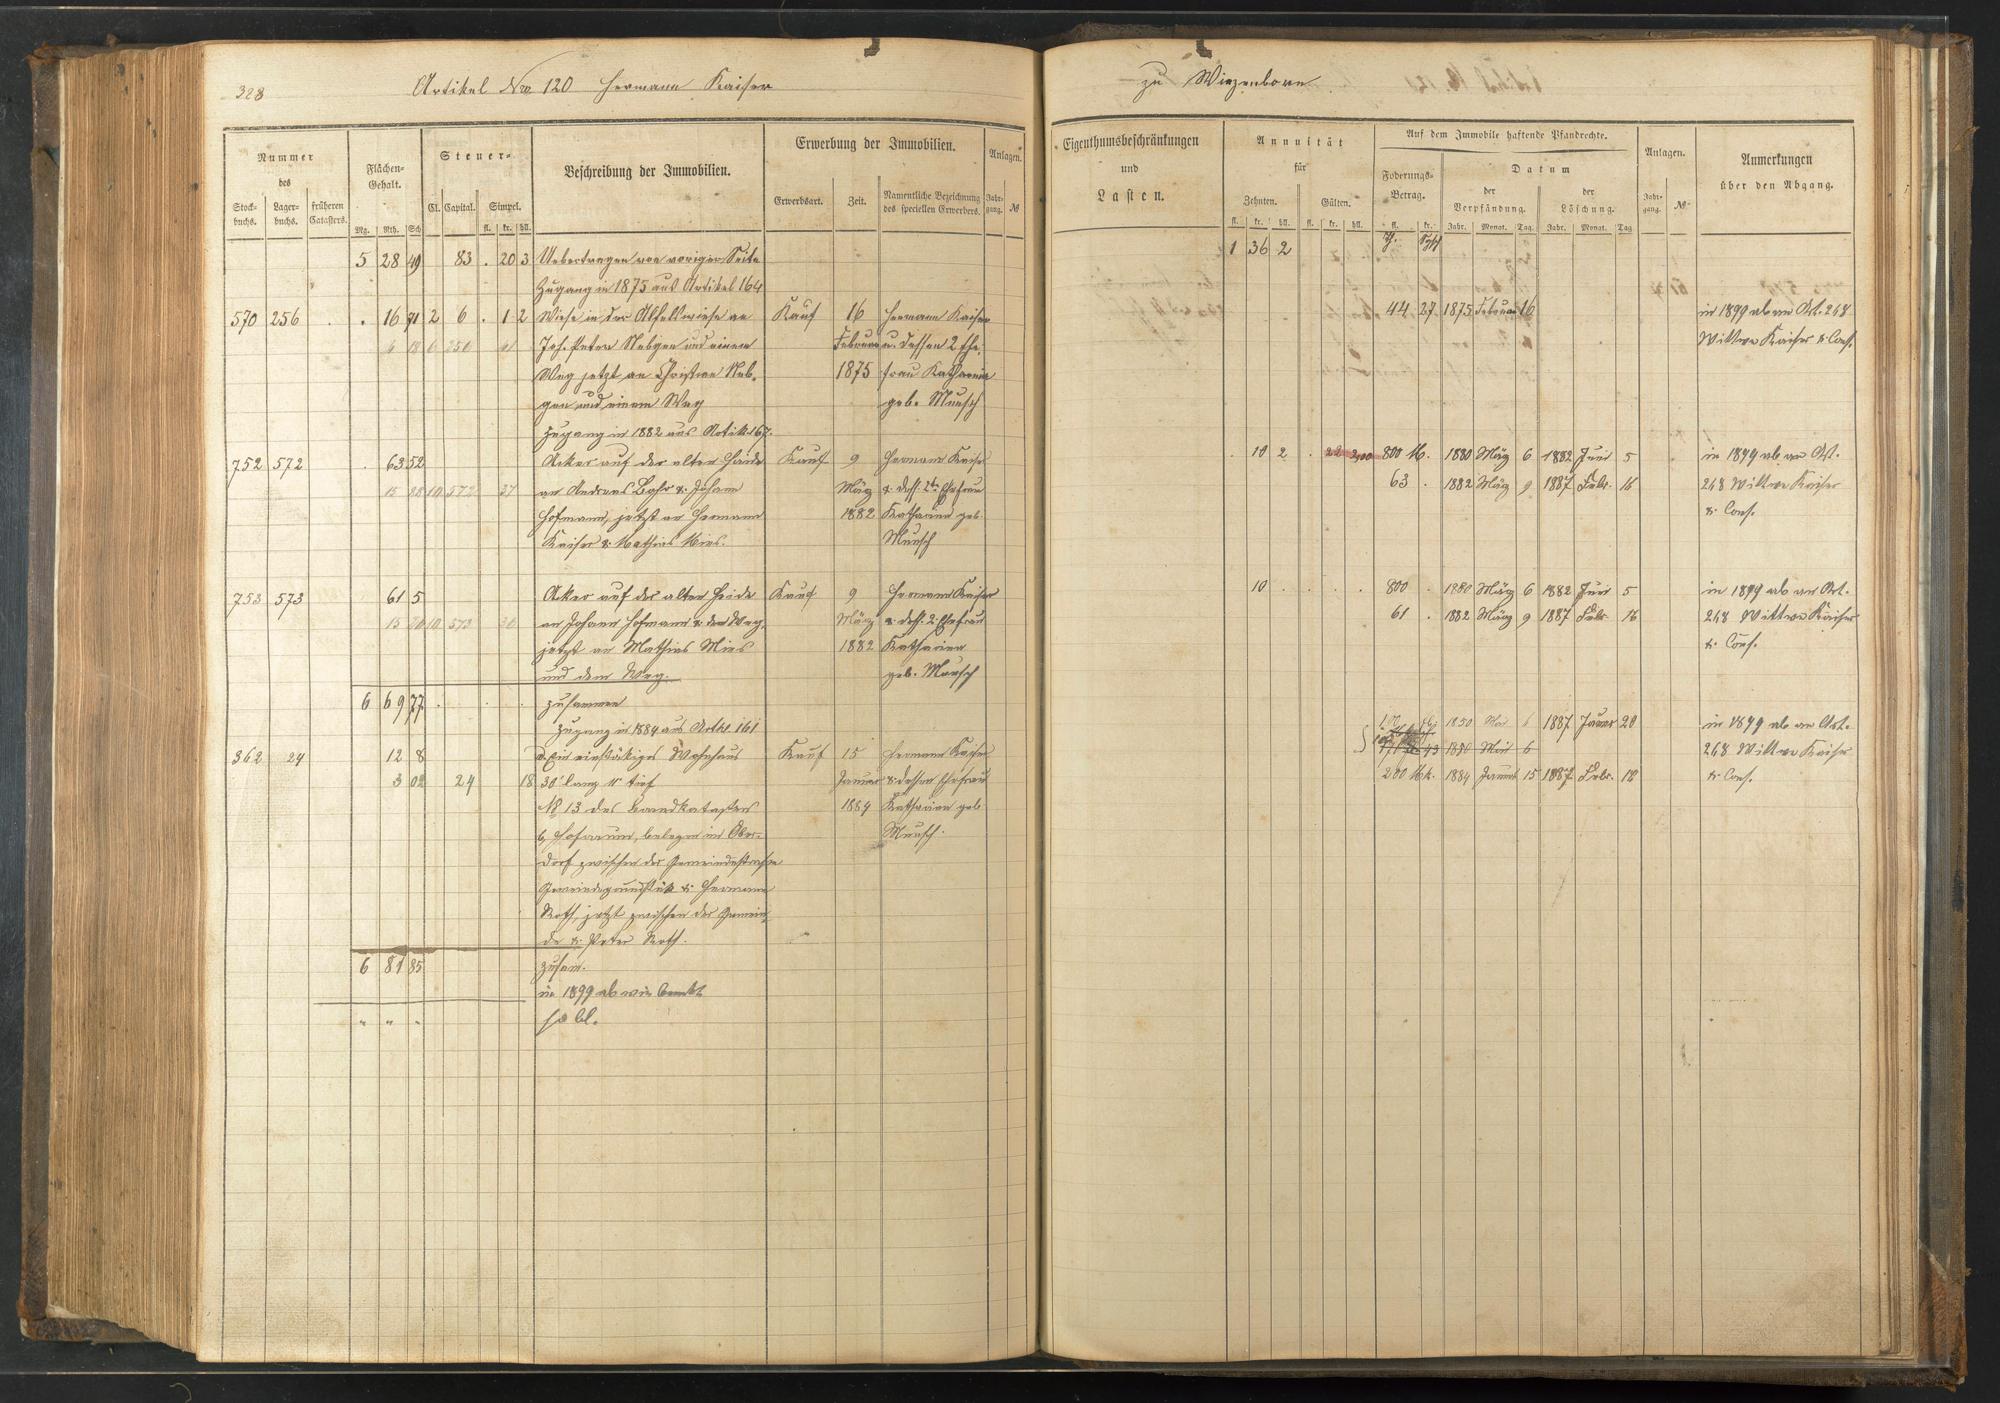 328
Artikel Nro 120 Hermann Kaiser
zu Winzenborn
Nummer
des
Stock-
buchs.
Lager-
buchs.
früheren
Catasters.
Flächen-
Gehalt.
Mg. Rth. Sch
Steuer-
Cl. Capital. Simpel.
fl. kr. hll.
Beschreibung der Immobilien.
Erwerbung der Immobilien.
Erwerbsart. Zeit. Namentliche Bezeichnung
des speciellen Erwerbers.
Anlagen.
Jahr-
gang. №
Eigenthumsbeschränkungen
und
Lasten.
Annuität
für
Zehnten. Gülten.
fl. kr. hll. fl. kr. hll.
Auf dem Immobile haftende Pfandrechte.
Foderungs-
Betrag.
fl. kr.
Datum
der
Verpfändung.
der
Löschung.
Jahr. Monat. Tag. Jahr. Monat. Tag
Anlagen.
Jahr-
gang. №
Anmerkungen
über den Abgang.
5 28 49 83 . 20 3 Uebertragen von voriger Seite 1 36 2
Zugang in 1875 aus Artikel 164
570 256 . . 16 71 2 6 . 1 2 Wiese in der Alfelswiese an Kauf 16 Hermann Kaiser 44 27 1875 Februar 16 in 1899 ab an Art. 268
Joh. Peter Nebgen und einem Februar u. dessen 2 Ehe- Wittwe Kaiser & Cons.
Weg jetzt an Christian Neb- 1875 frau Katharina
gen und einem Weg geb. Mensch
Zugang in 1882 aus Artik. 167.
752 572 . 63 52 Acker auf der alten Heide Kauf 9 Hermann Kaiser . 10 2 800 M. 1880 März 6 1882 Juni 5 in 1899 ab an Art.
15 88 10 572 37 an Andreas Bahr & Johann März & dess. 2te Ehefrau 63 . 1882 März 9 1887 Febr. 16 268 Wittwe Kaiser
Hofmann, jetzt an Hermann 1882 Katharina geb. & Cons.
Kaiser & Mathias Mies. Mensch
753 573 61 5 Acker auf der alten Heide Kauf 9 Hermann Kaiser 10 . . . . 800 . 1880 März 6 1882 Juni 5 in 1899 ab an Art.
10 573 an Johann Hofmann & dem Weg, März & dess. 2. Ehefrau 61 . 1882 März 9 1887 Febr. 16 268 Wittwe Kaiser
jetzt an Mathias Mies 1882 Katharina & Cons.
und dem Weg. geb. Mensch
6 69 77 . . . zusammen
Zugang in 1884 aus Artkl. 161 1850 Mai 6 1887 Januar 20 in 1899 ab an Art.
362 24 12 8 a, Ein einstökiges Wohnhaus Kauf 15 Hermann Kaiser 1880 Mai 6 268 Wittwe Kaiser
3 02 24 18 30' lang tief Januar & dessen Ehefrau 200 Mk. 1884 Januar 15 1887 Febr. 18 & Cons.
№ 13 des Brandkatasters 1884 Katharina geb.
b, Hofraum, belegen im Ober- Mensch.
dorf zwischen der Gemeindestraße
Gemeindegrundstük & Hermann
Roth, jetzt zwischen der Gemein-
de & Peter Roth.
6 81 85 zusam.
in 1899 ab wie bemkt
" " "